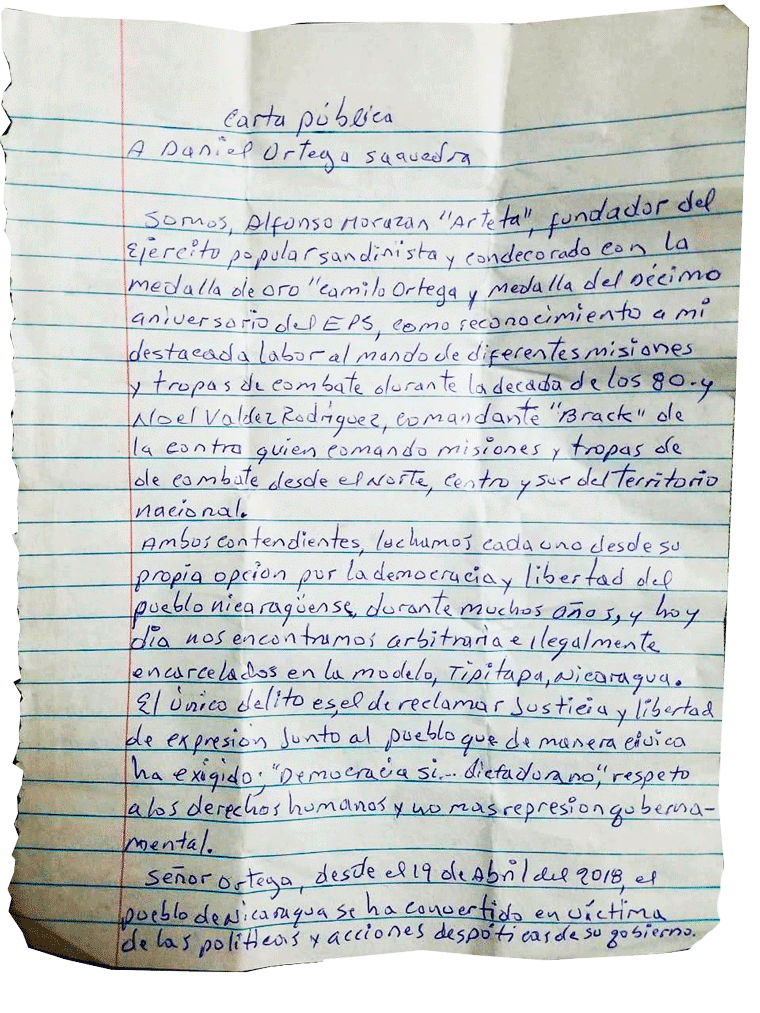 Carta pública
A Daniel Ortega Saavedra
Somos, Alfonso Morazan "Arteta", fundador del
Ejército popular sandinista y condecorado con la
medalla de oro "Camilo Ortega y medalla del Décimo
aniversario del EPS, como reconocimiento a mi
destacada labor al mando de diferentes misiones
y tropas de combate durante la decada de los 80-y
Noel Valdez Rodríguez, comandante "Brack" de
la contra quien comando misiones y tropas de
de combate desde el Norte, centro y sur del territorio
nacional.
Ambos contendientes, luchamos cada uno desde su
propia opcion por la democracia y libertad del
pueblo nicaragüense, durante muchos años, y hoy
día nos encontramos arbitraria e ilegalmente
encarcelados en la modelo, Tipitapa, Nicaragua.
El único delito es, el de reclamar Justicia y libertad
de expresión Junto al pueblo que de manera cívica
ha exigido; "Democracia si... dictadura no", respeto
a los derechos humanos y no mas represion guberna-
mental.
Señor Ortega, desde el 19 de Abril del 2018, el
pueblo de Nicaragua se ha convertido en víctima
de las políticas y acciones despóticas de su gobierno.